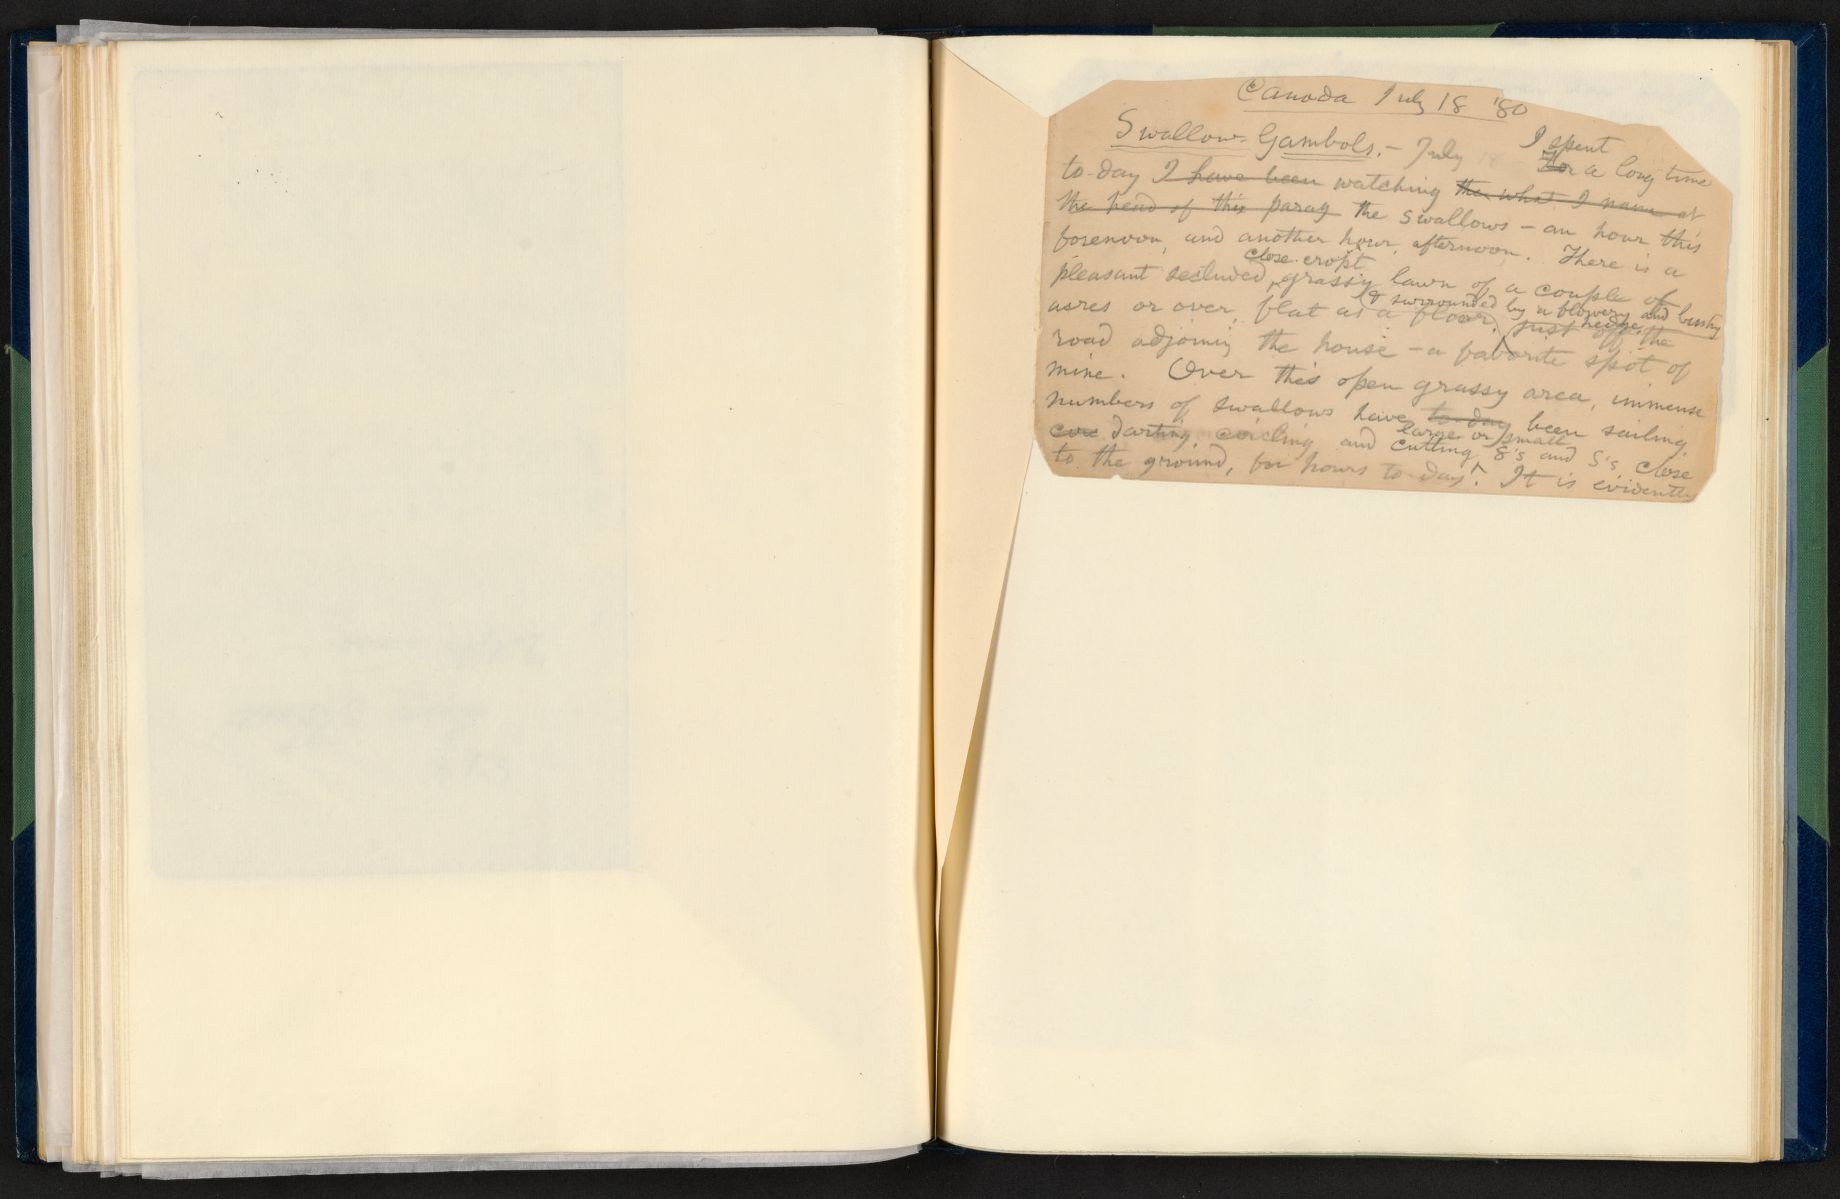 Canada July 18 '80
Swallow-Gambols. – July 18 – I spent
to-day I have been watching the what I name at for a long time
the head of this parag the swallows – an hour this
forenoon, and another hour, afternoon. There is a
pleasant secluded close-cropt grassy lawn of a couple of
acres or over, flat as a floor & surrounded by a flowery and bushy hedge, just off the
road adjoining the house – a favorite spot of
mine. Over this open grassy area, immense
numbers of swallows have to-day been sailing,
darting, circling and cutting large or small 8's and S's, close
to the ground, for hours to-day. It is evidently